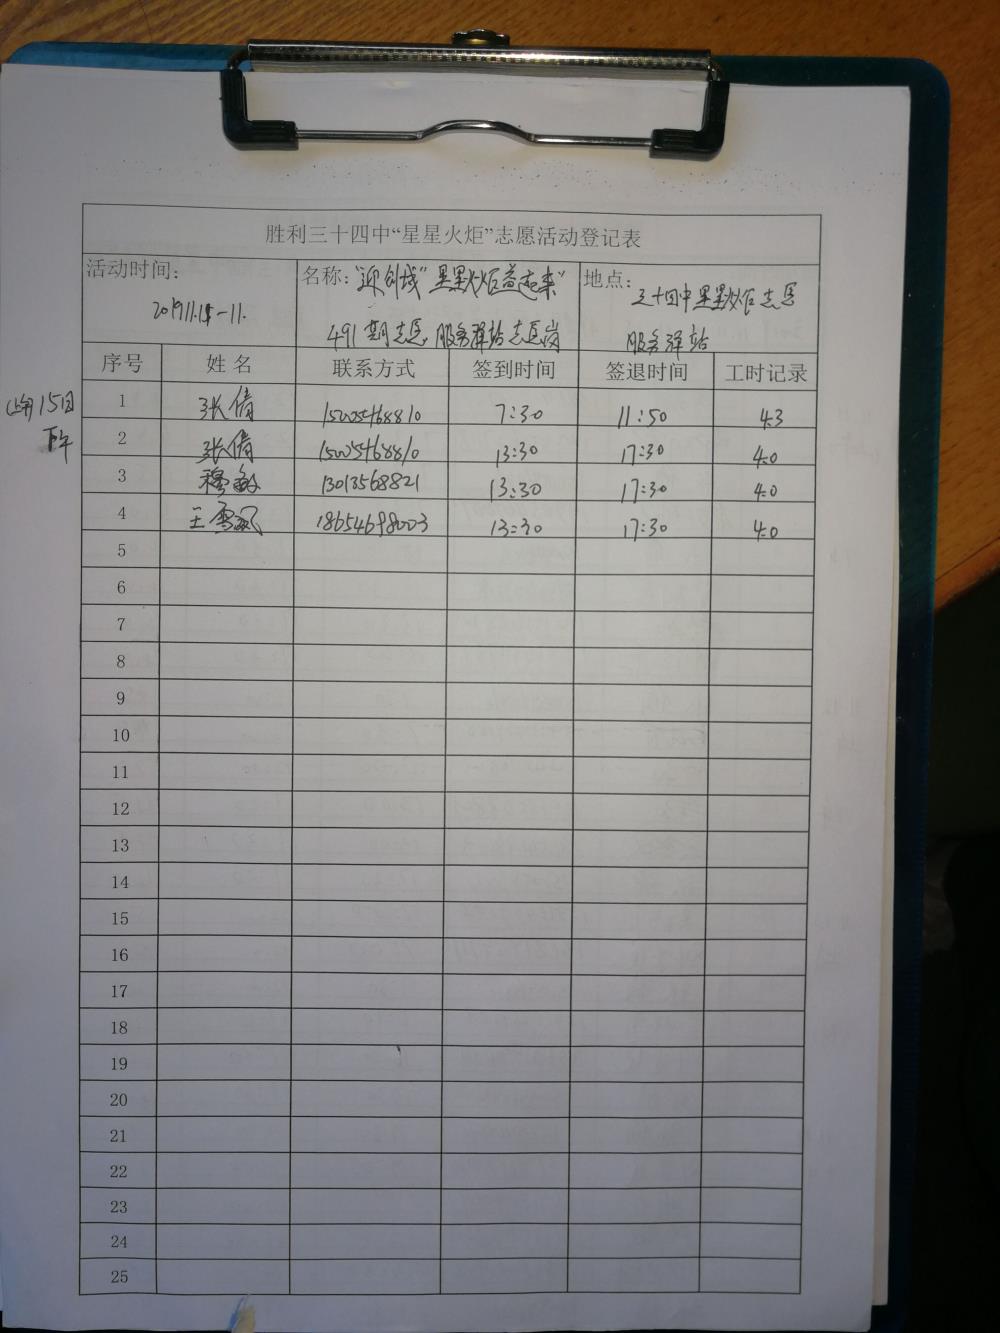 胜利三十四中“星星火炬”志愿活动登记表
活动时间： 名称：“迎创城”星星火炬益起来” 地点：三十四中星星火炬志愿
2019.11.15-11.
491期志愿服务驿站志愿岗 服务驿站
序号 姓名 联系方式 签到时间 签退时间 工时记录
15日 1 张倩 15005468810 7:30 11:50 4.3
下午 2 张倩 15005468810 13:30 17:30 4.0
3 穆敏 13013568821 13:30 17:30 4.0
4 王雪 18654698003 13:30 17:30 4.0
5
6
7
8
9
10
11
12
13
14
15
16
17
18
19
20
21
22
23
24
25